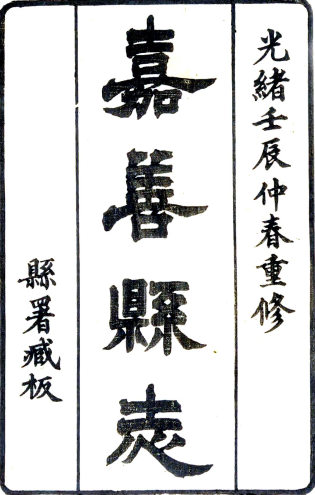 光緒壬辰仲春重修
嘉善縣志
縣署藏板